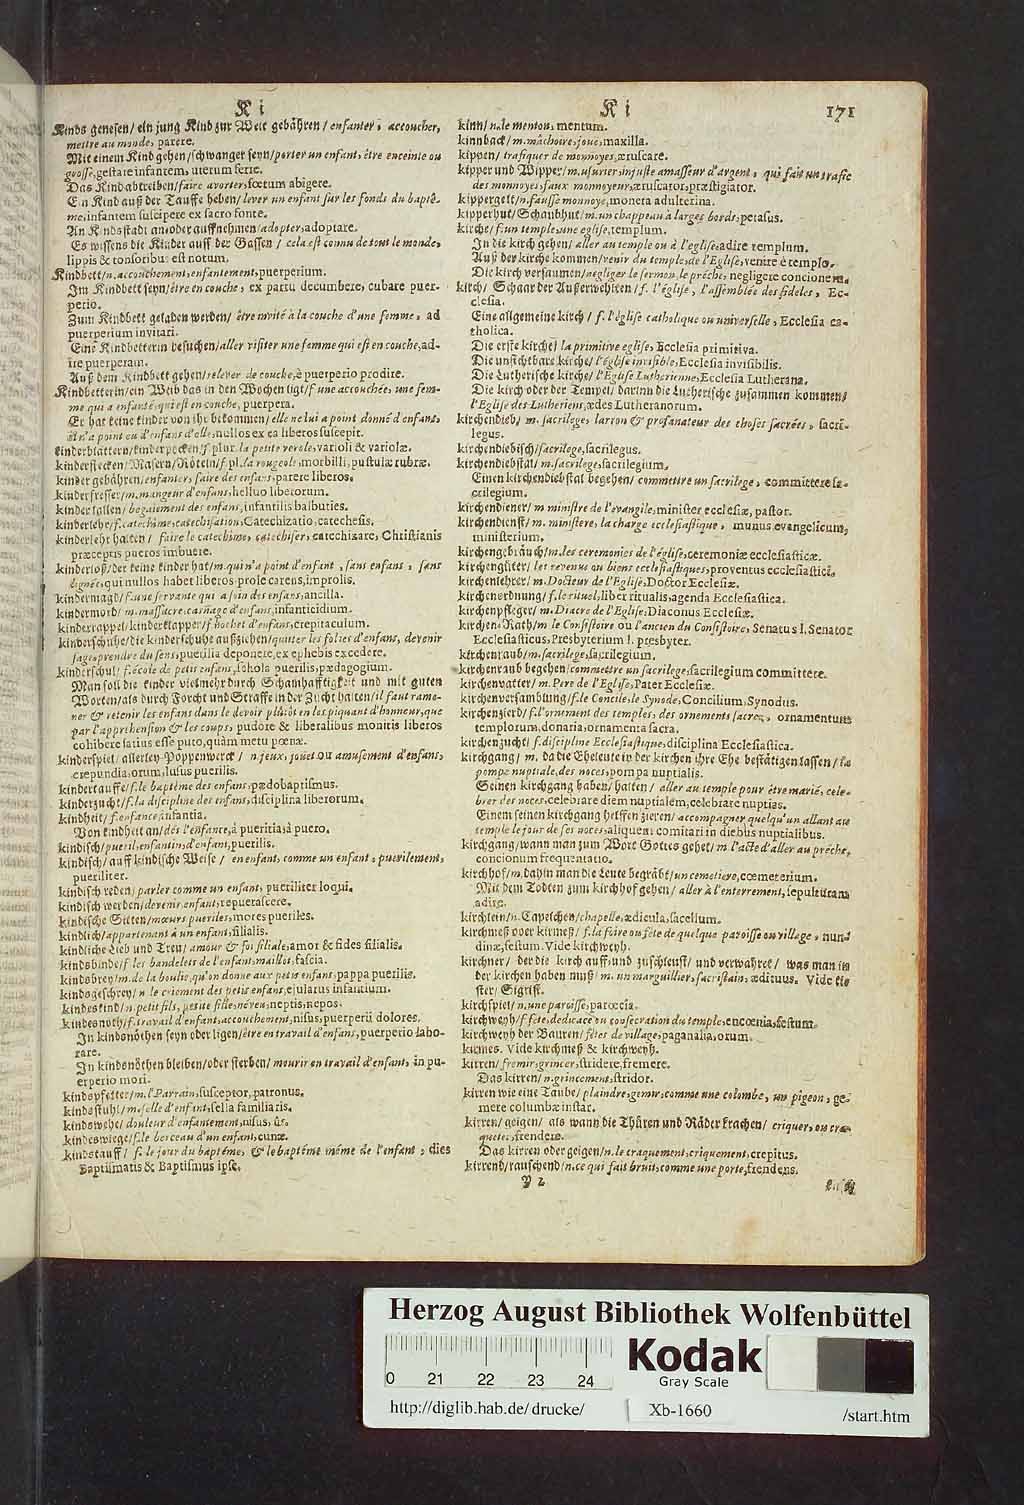 Ki
Ki
171
Kinds genesen/ ein jung Kind zur Welt gebähren/ enfanter, accoucher,
mettre au monde, parere.
Mit einem Kind gehen/ schwanger seyn/ porter un enfant, être enceinte ou
grosse, gestare infantem, uterum ferre.
Das Kind abtreiben/ faire avorter, fœtum abigere.
Ein Kind auß der Tauffe heben/ lever un enfant sur les fonds du baptê-
me, infantem suscipere ex sacro fonte.
An Kindsstadt an- oder auffnehmen/ adopter, adoptare.
Es wissens die Kinder auff der Gassen/ cela est connu de tout le monde,
lippis & tonsoribus est notum.
Kindbett/ n. accouchement, enfantement, puerperium.
Im Kindbett seyn/ être en couche, ex partu decumbere, cubare puer-
perio.
Zum Kindbett geladen werden/ être invité à la couche d'une femme, ad
puerperium invitari.
Eine Kindbetterin besuchen/ aller visiter une femme qui est en couche, ad-
ire puerperam.
Auß dem Kindbett gehen/ relever de couche, è puerperio prodire.
Kindbetterin/ ein Weib das in den Wochen ligt/ f. une accouchée, une fem-
me qui a enfanté, qui est en couche, puerpera.
Er hat keine kinder von ihr bekommen/ elle ne lui a point donné d'enfans,
il n'a point eu d'enfans d'elle, nullos ex ea liberos suscepit.
kinderblattern/ kinderpocken/ f. plur. la petite verole, varioli & variolæ.
kinderflecken/ Masern/ Röteln/ f. pl. la rougeole, morbilli, pustulæ rubræ.
kinder gebähren/ enfanter, faire des enfans, parere liberos.
kinderfresser/ m. mangeur d'enfans, helluo liberorum.
kinder lallen/ begaiement des enfans, infantilis balbuties.
kinderlehr/ f. catechisme, catechisation, Catechizatio, catechesis.
kinderlehr halten/ faire le catechisme, catechiser, catechizare, Christianis
præceptis pueros imbuere.
kinderloß/ der keine kinder hat/ m. qui n'a point d'enfant, sans enfans, sans
lignée, qui nullos habet liberos, prole carens, improlis.
kindermagd/ f. une servante qui a soin des enfans, ancilla.
kindermord/ m. massacre, carnage d'enfans, infanticidium.
kinderrappel/ kinderklapper/ f. hochet d'enfans, crepitaculum.
kinderschuhe/ die kinderschuhe außziehen/ quitter les folies d'enfans, devenir
sage, prendre du sens, puerilia deponere, ex ephebis excedere.
kinderschul/ f. école de petits enfans, schola puerilis, pædagogium.
Man soll die kinder vielmehr durch Schamhafftigkeit und mit guten
Worten/ als durch Forcht und Straffe in der Zucht halten/ il faut rame-
ner & retenir les enfans dans le devoir plûtôt en les piquant d'honneur, que
par l'apprehension & les coups, pudore & liberalibus monitis liberos
cohibere satius esse puto, quàm metu pœnæ.
kinderspiel/ allerley Poppenwerck/ n. jeux, jouet ou amusement d'enfans,
crepundia, orum, lusus puerilis.
kindertauffe/ f. le baptême des enfans, pædobaptismus.
kinderzucht/ f. la discipline des enfans, disciplina liberorum.
kindheit/ f. enfance, infantia.
Von kindheit an/ dés l'enfance, à pueritia, à puero.
kindisch/ pueril, enfantin, d'enfant, puerilis.
kindisch/ auff kindische Weise/ en enfant, comme un enfant, puerilement,
pueriliter.
kindisch reden/ parler comme un enfant, pueriliter loqui.
kindisch werden/ devenir enfant, repuerascere.
kindische Sitten/ mœurs pueriles, mores pueriles.
kindlich/ appartenant à un enfant, filialis.
kindliche Lieb und Treu/ amour & foi filiale, amor & fides filialis.
kindsbinde/ f. les bandelets de l'enfant, maillot, fascia.
kindsbrey/ m. de la boulie, qu'on donne aux petis enfans, pappa puerilis.
kindsgeschrey/ n. le criement des petis enfans, ejulatus infantium.
kindeskind/ n. petit fils, petite fille, néveu, neptis, nepos.
kindsnoth/ f. travail d'enfant, accouchement, nisus, puerperii dolores.
In kindsnöthen seyn oder ligen/ être en travail d'enfant, puerperio labo-
rare.
In kindsnöthen bleiben/ oder sterben/ mourir en travail d'enfant, in pu-
erperio mori.
kindspfetter/ m. l'Parrain, susceptor, patronus.
kindsstuhl/ m. selle d'enfant, sella familiaris.
kindswehe/ douleur d'enfantement, nisus, ûs.
kindswiege/ f. le berceau d'un enfant, cunæ.
kindstauff/ f. le jour du baptême, & le baptême même de l'enfant, dies
Baptismatis & Baptismus ipse.
kinn/ n. le menton, mentum.
kinnback/ m. mâchoire, joue, maxilla.
kippen/ trafiquer de monnoyes, æruscare.
kipper und Wipper/ m. usurier, injuste amasseur d'argent, qui fait un trafic
des monnoyes, faux monnoyeur, æruscator, præstigiator.
kippergelt/ n. fausse monnoye, moneta adulterina.
kipperhut/ Schaubhut/ m. un chappeau à larges bords, petasus.
kirche/ f. un temple, une eglise, templum.
In die kirch gehen/ aller au temple ou à l'eglise, adire templum.
Auß der kirche kommen/ venir du temple, de l'Eglise, venire è templo.
Die kirch versaumen/ negliger le sermon, le prêche, negligere concionem.
kirch/ Schaar der Außerwehlten/ f. l'église, l'assemblée des fideles, Ec-
clesia.
Eine allgemeine kirch/ f. l'église catholique ou universelle, Ecclesia ca-
tholica.
Die erste kirche/ la primitive eglise, Ecclesia primitiva.
Die unsichtbare kirche/ l'église invisible, Ecclesia invisibilis.
Die Lutherische kirche/ l'Eglise Lutherienne, Ecclesia Lutherana.
Die kirch oder der Tempel/ darinn die Lutherische zusammen kommen/
l'Eglise des Lutheriens, ædes Lutheranorum.
kirchendieb/ m. sacrilege, larron & profanateur des choses sacrées, sacri-
legus.
kirchendiebisch/ sacrilege, sacrilegus.
kirchendiebstal/ m. sacrilege, sacrilegium.
Einen kirchendiebstal begehen/ commettre un sacrilege, committere sa-
crilegium.
kirchendiener/ m. ministre de l'évangile, minister ecclesiæ, pastor.
kirchendienst/ m. ministere, la charge ecclesiastique, munus evangelicum,
ministerium.
kirchengebräuch/ m. les ceremonies de l'église, ceremoniæ ecclesiasticæ.
kirchengüter/ les revenus ou biens ecclesiastiques, proventus ecclesiastici.
kirchenlehrer/ m. Docteur de l'Eglise, Doctor Ecclesiæ.
kirchenordnung/ f. le rituel, liber ritualis, agenda Ecclesiastica.
kirchenpfleger/ m. Diacre de l'Eglise, Diaconus Ecclesiæ.
kirchen-Rath/ m. le Consistoire ou l'ancien du Consistoire, Senatus l. Senator
Ecclesiasticus, Presbyterium l. presbyter.
kirchenraub/ m. sacrilege, sacrilegium.
kirchenraub begehen/ commettre un sacrilege, sacrilegium committere.
kirchenvatter/ m. Pere de l'Eglise, Pater Ecclesiæ.
kirchenversamblung/ f. le Concile, le Synode, Concilium, Synodus.
kirchenzierd/ f. l'ornement des temples, des ornements sacrez, ornamentum
templorum, donaria, ornamenta sacra.
kirchenzucht/ f. discipline Ecclesiastique, disciplina Ecclesiastica.
kirchgang/ m. da die Eheleute in der kirchen ihre Ehe bestättigen lassen/ la
pompe nuptiale, des noces, pompa nuptialis.
Seinen kirchgang haben/ halten/ aller au temple pour être marié, cele-
brer des noces, celebrare diem nuptialem, celebrare nuptias.
Einem seinen kirchgang helffen zieren/ accompagner quelqu'un allant au
temple le jour de ses noces, aliquem comitari in diebus nuptialibus.
kirchgang/ wann man zum Wort Gottes gehet/ m. l'acte d'aller au prêche,
concionum frequentatio.
kirchhof/ m. dahin man die Leute begräbt/ un cemetiere, cœmeterium.
Mit dem Todten zum kirchhof gehen/ aller à l'enterrement, sepulturam
adire.
kirchlein/ n. Capelchen/ chapelle, ædicula, sacellum.
kirchmeß oder kirmeß/ f. la foire ou fête de quelque paroisse ou village, nun-
dinæ, festum. Vide kirchweyh.
kirchner/ der die kirch auff- und zuschleust/ und verwahret/ was man in
der kirchen haben muß/ m. un marguillier, sacristain, ædituus. Vide Kü-
ster/ Sigrist.
kirchspiel/ n. une paroisse, parœcia.
kirchweyh/ f. fête, dedicace ou consecration du temple, encœnia, festum.
kirchweyh der Bauren/ fêtes de village, paganalia, orum.
kirmes. Vide kirchmeß & kirchweyh.
kirren/ fremir, grincer, stridere, fremere.
Das kirren/ n. grincement, stridor.
kirren wie eine Taube/ plaindre, gemir, comme une colombe, un pigeon, ge-
mere columbæ instar.
kirren/ geigen/ als wann die Thüren und Räder krachen/ criquer, ou cra-
queter, frendere.
Das kirren oder geigen/ n. le craquement, criquement, crepitus.
kirrend/ rauschend/ n. ce qui fait bruit, comme une porte, frendens.
Y 2
Herzog August Bibliothek Wolfenbüttel
0 21 22 23 24
Kodak
Gray Scale
http://diglib.hab.de/drucke/ Xb-1660 /start.htm